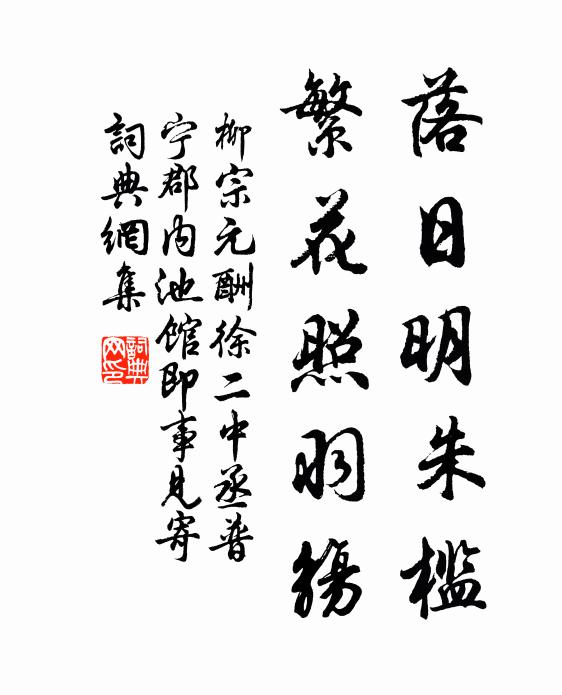 落日明朱檻
繁花照羽觴
柳宗元酬徐二中丞普
宁郡内池館即事見寄
詞典網集
詞典網印